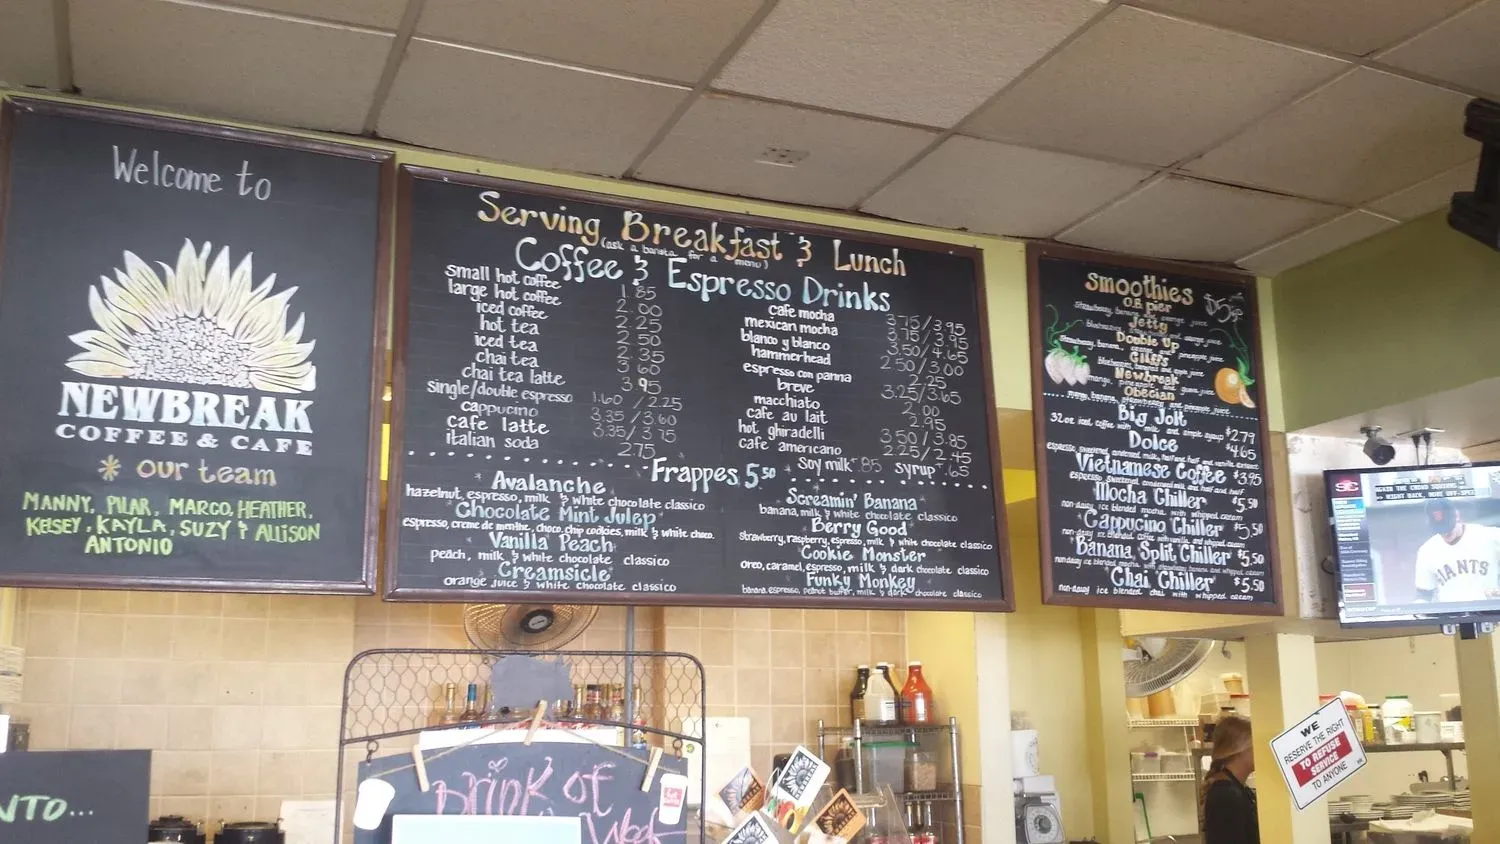 Welcome to
NEWBREAK
COFFEE & CAFE
our team
MANNY, PILAR, MARCO, HEATHER,
KELSEY, KAYLA, SUZY & ALLISON
ANTONIO
Serving Breakfast & Lunch
(ask a barista for a menu)
Coffee & Espresso Drinks
small hot coffee 1.85
large hot coffee 2.00
iced coffee 2.25
hot tea 2.50
iced tea 2.35
chai tea 3.60
chai tea latte 3.95
single/double espresso 1.60 / 2.25
cappucino 3.35 / 3.60
cafe latte 3.35 / 3.75
italian soda 2.75
cafe mocha 3.75/3.95
mexican mocha 3.75/3.95
blanco y blanco 3.50/4.65
hammerhead 2.50/3.00
espresso con panna 2.25
breve 3.25/3.65
macchiato 2.00
cafe au lait 2.95
hot ghiradelli 3.50/3.85
cafe americano 2.25/2.45
soy milk .85 syrup .65
Frappes 5.50
Avalanche
hazelnut, espresso, milk & white chocolate classico
Chocolate Mint Julep
espresso, creme de menthe, choco. chip cookies, milk & white choco.
Vanilla Peach
peach, milk & white chocolate classico
Creamsicle
orange juice & white chocolate classico
Screamin' Banana
banana, milk & white chocolate classico
Berry Good
strawberry, raspberry, espresso, milk & white chocolate classico
Cookie Monster
oreo, caramel, espresso, milk & dark chocolate classico
Funky Monkey
banana, espresso, peanut butter, milk & dark chocolate classico
Smoothies
O.B. pier
strawberry, banana and orange juice
Jetty
Double Up
strawberry, banana, orange and pineapple juice
blueberries, bananas and apple juice
Newbreak
mango, pineapple, and guava juice
Obecian
mango, banana, strawberry and pineapple juice
Big Jolt
32oz iced coffee with milk and simple syrup $2.79
Dolce $4.65
espresso, sweetened condensed milk, half and half and vanilla
Vietnamese Coffee $3.95
espresso sweetened condensed milk and half and half
Mocha Chiller $5.50
non-dairy ice blended mocha with whipped cream
Cappucino Chiller $5.50
non-dairy ice blended coffee with vanilla and whipped cream
Banana Split Chiller $5.50
non-dairy ice blended mocha, with strawberry banana and whipped cream
Chai Chiller $5.50
non-dairy ice blended chai with whipped cream
GIANTS
WE
RESERVE THE RIGHT
TO REFUSE
SERVICE
TO ANYONE
NTO...
Drink of
Week